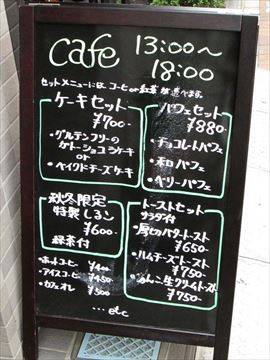 cafe 13:00～
18:00
セットメニューには、コーヒーor紅茶が選べます。
ケーキセット
¥700-
・グルテンフリーの
ガトーショコラケーキ
or
・ベイクドチーズケーキ
パフェセット
¥880-
・チョコレートパフェ
・和パフェ
・ベリーパフェ
秋冬限定
特製しるこ
¥600-
緑茶付
トーストセット
サラダ付
・厚切バタートースト
¥650-
・ハムチーズトースト
¥750-
・あんこ生クリームトースト
¥750-
・ホットコーヒー ¥400
・アイスコーヒー ¥450
・カフェオレ ¥500
...etc